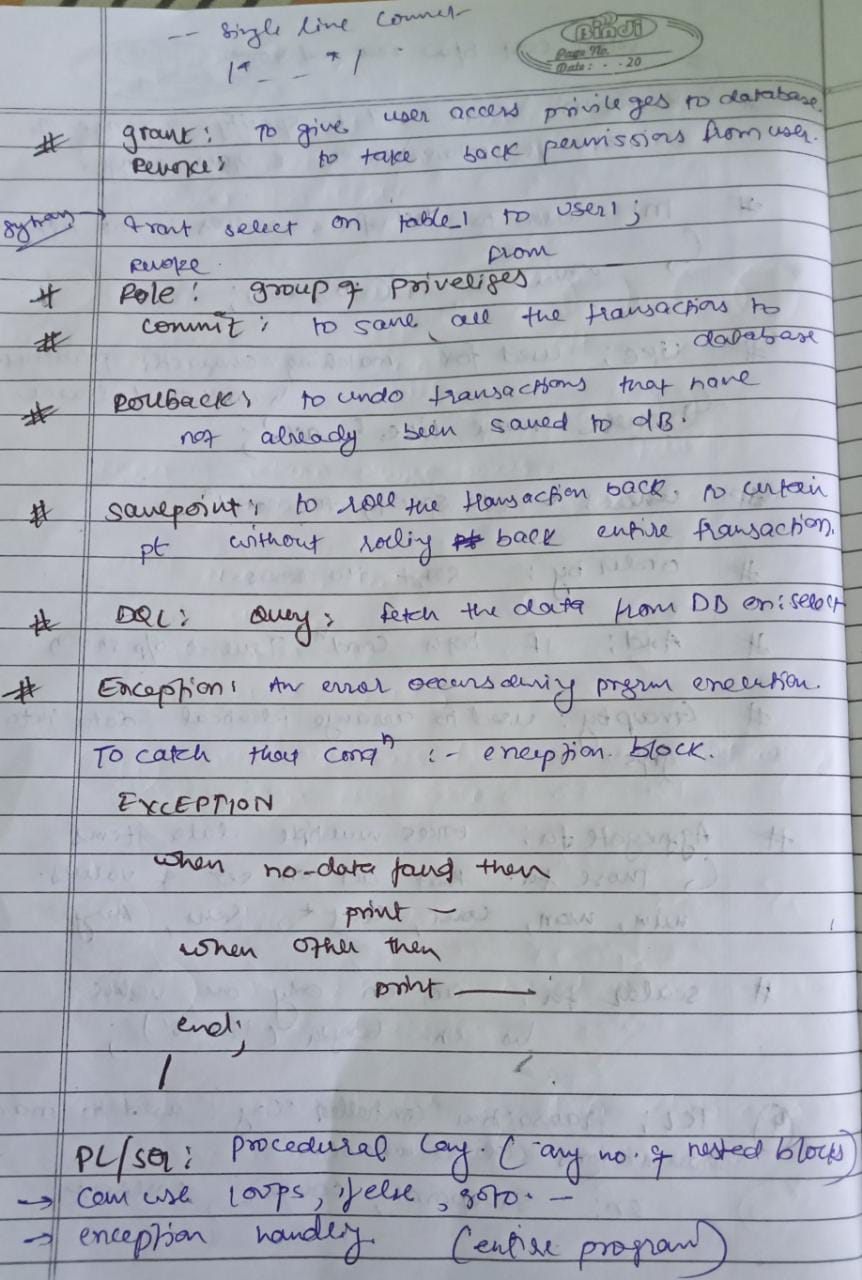 -- Single line comment
/* _ _ */
Bindi
Page No.
Date: . . 20
# grant: To give user access privileges to database.
Revoke: to take back permissions from user.
Syntax → Grant select on table_1 to user1;
Revoke from
# Role: group of priveliges
# commit: to save all the transactions to
database
# Rollback: to undo transactions that have
not already been saved to dB.
# Savepoint: to roll the transaction back to certain
pt without rolling back entire transaction.
# DQL: Query: fetch the data from DB en: select
# Exception: An error occurs during progrm execution.
To catch that condn :- exception block.
EXCEPTION
when no-data found then
print —
when other then
print ——
end;
/
PL/SQL: procedural lang. (any no. of nested blocks)
→ can use loops, if else, goto. —
→ exception handling (entire program)